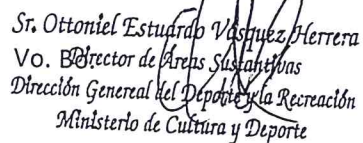 Sr. Ottoniel Estuardo Vásquez Herrera
Vo. Bo.
Director de Áreas Sustantivas
Dirección Genereal del Deporte y la Recreación
Ministerio de Cultura y Deporte